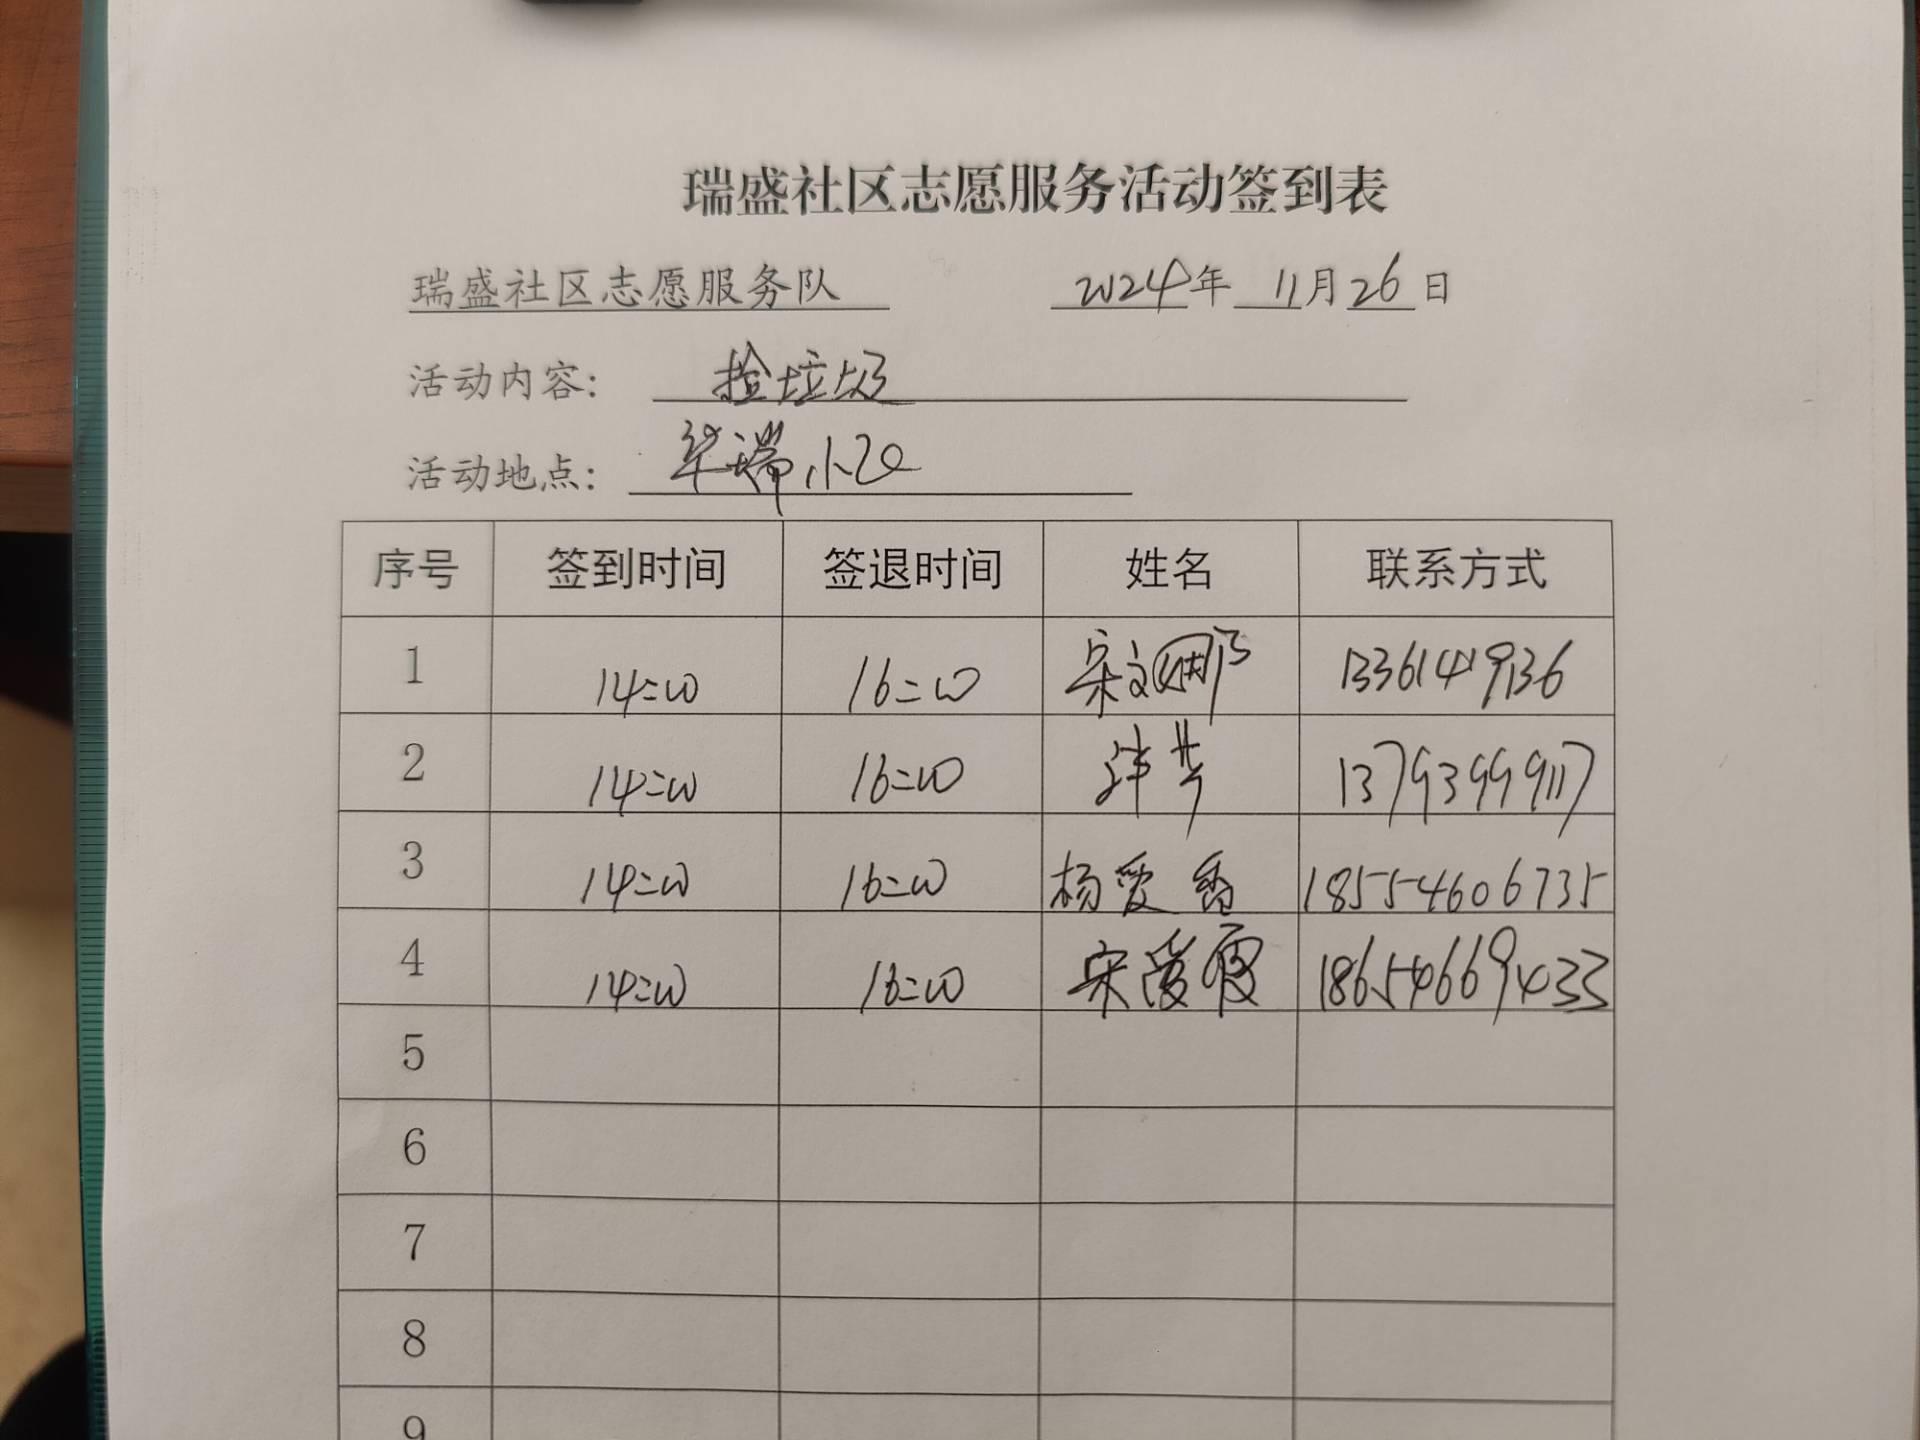 瑞盛社区志愿服务活动签到表
瑞盛社区志愿服务队 2024年 11月26日
活动内容: 捡垃圾
活动地点: 华瑞小区
序号 签到时间 签退时间 姓名 联系方式
1 14:00 16:00 宋文娜
2 14:00 16:00 13793999117
3 14:00 16:00 杨爱香 18554606735
4 14:00 16:00 宋爱霞 18654669433
5
6
7
8
9